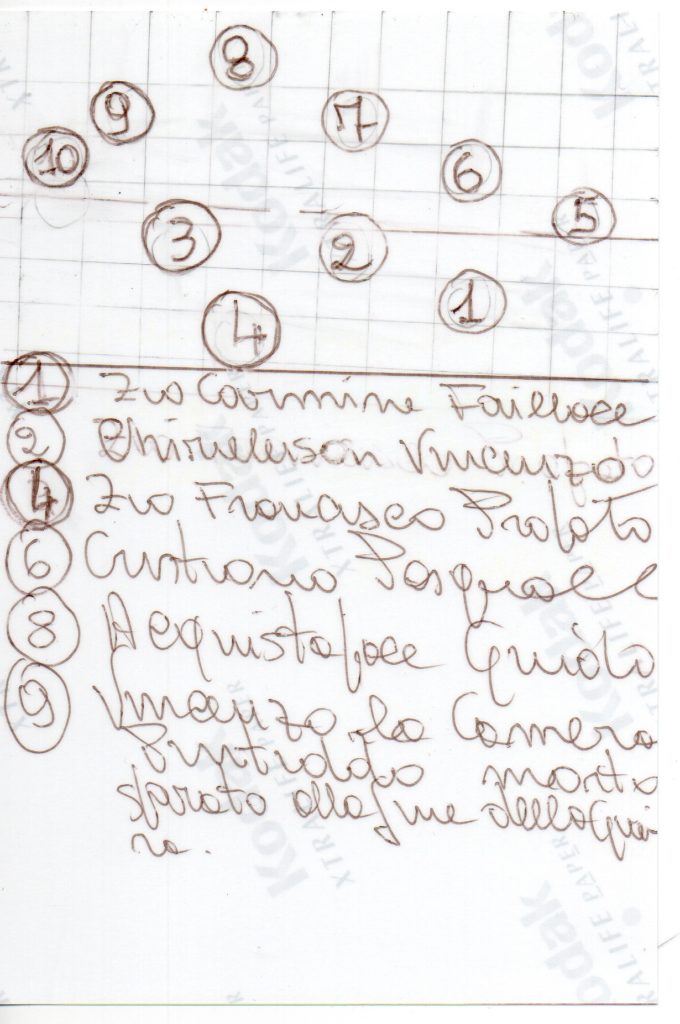 8
9
7
10
6
5
3
2
1
4
1 Zio Carmine Failloce
2 Vincenzo
4 Zio Francesco Profato
6 Cristiano Pasquale
8 Acquistapace Guido
9 Vincenzo La Camera
morto
sparato alla fine della guer
ra.
Kodak
XTRALIFE PAPER